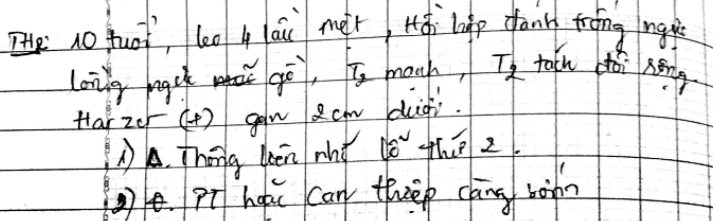 TH2: 10 tuổi, leo 4 lầu mệt, Hồi hộp đánh trống ngực
lồng ngực gồ, T2 mạnh, T2 tách đôi rộng.
Harzer (+) gan 2cm dưới.
1) Δ. Thông liên nhĩ lỗ thứ 2.
2) PT hoặc Can thiệp càng sớm